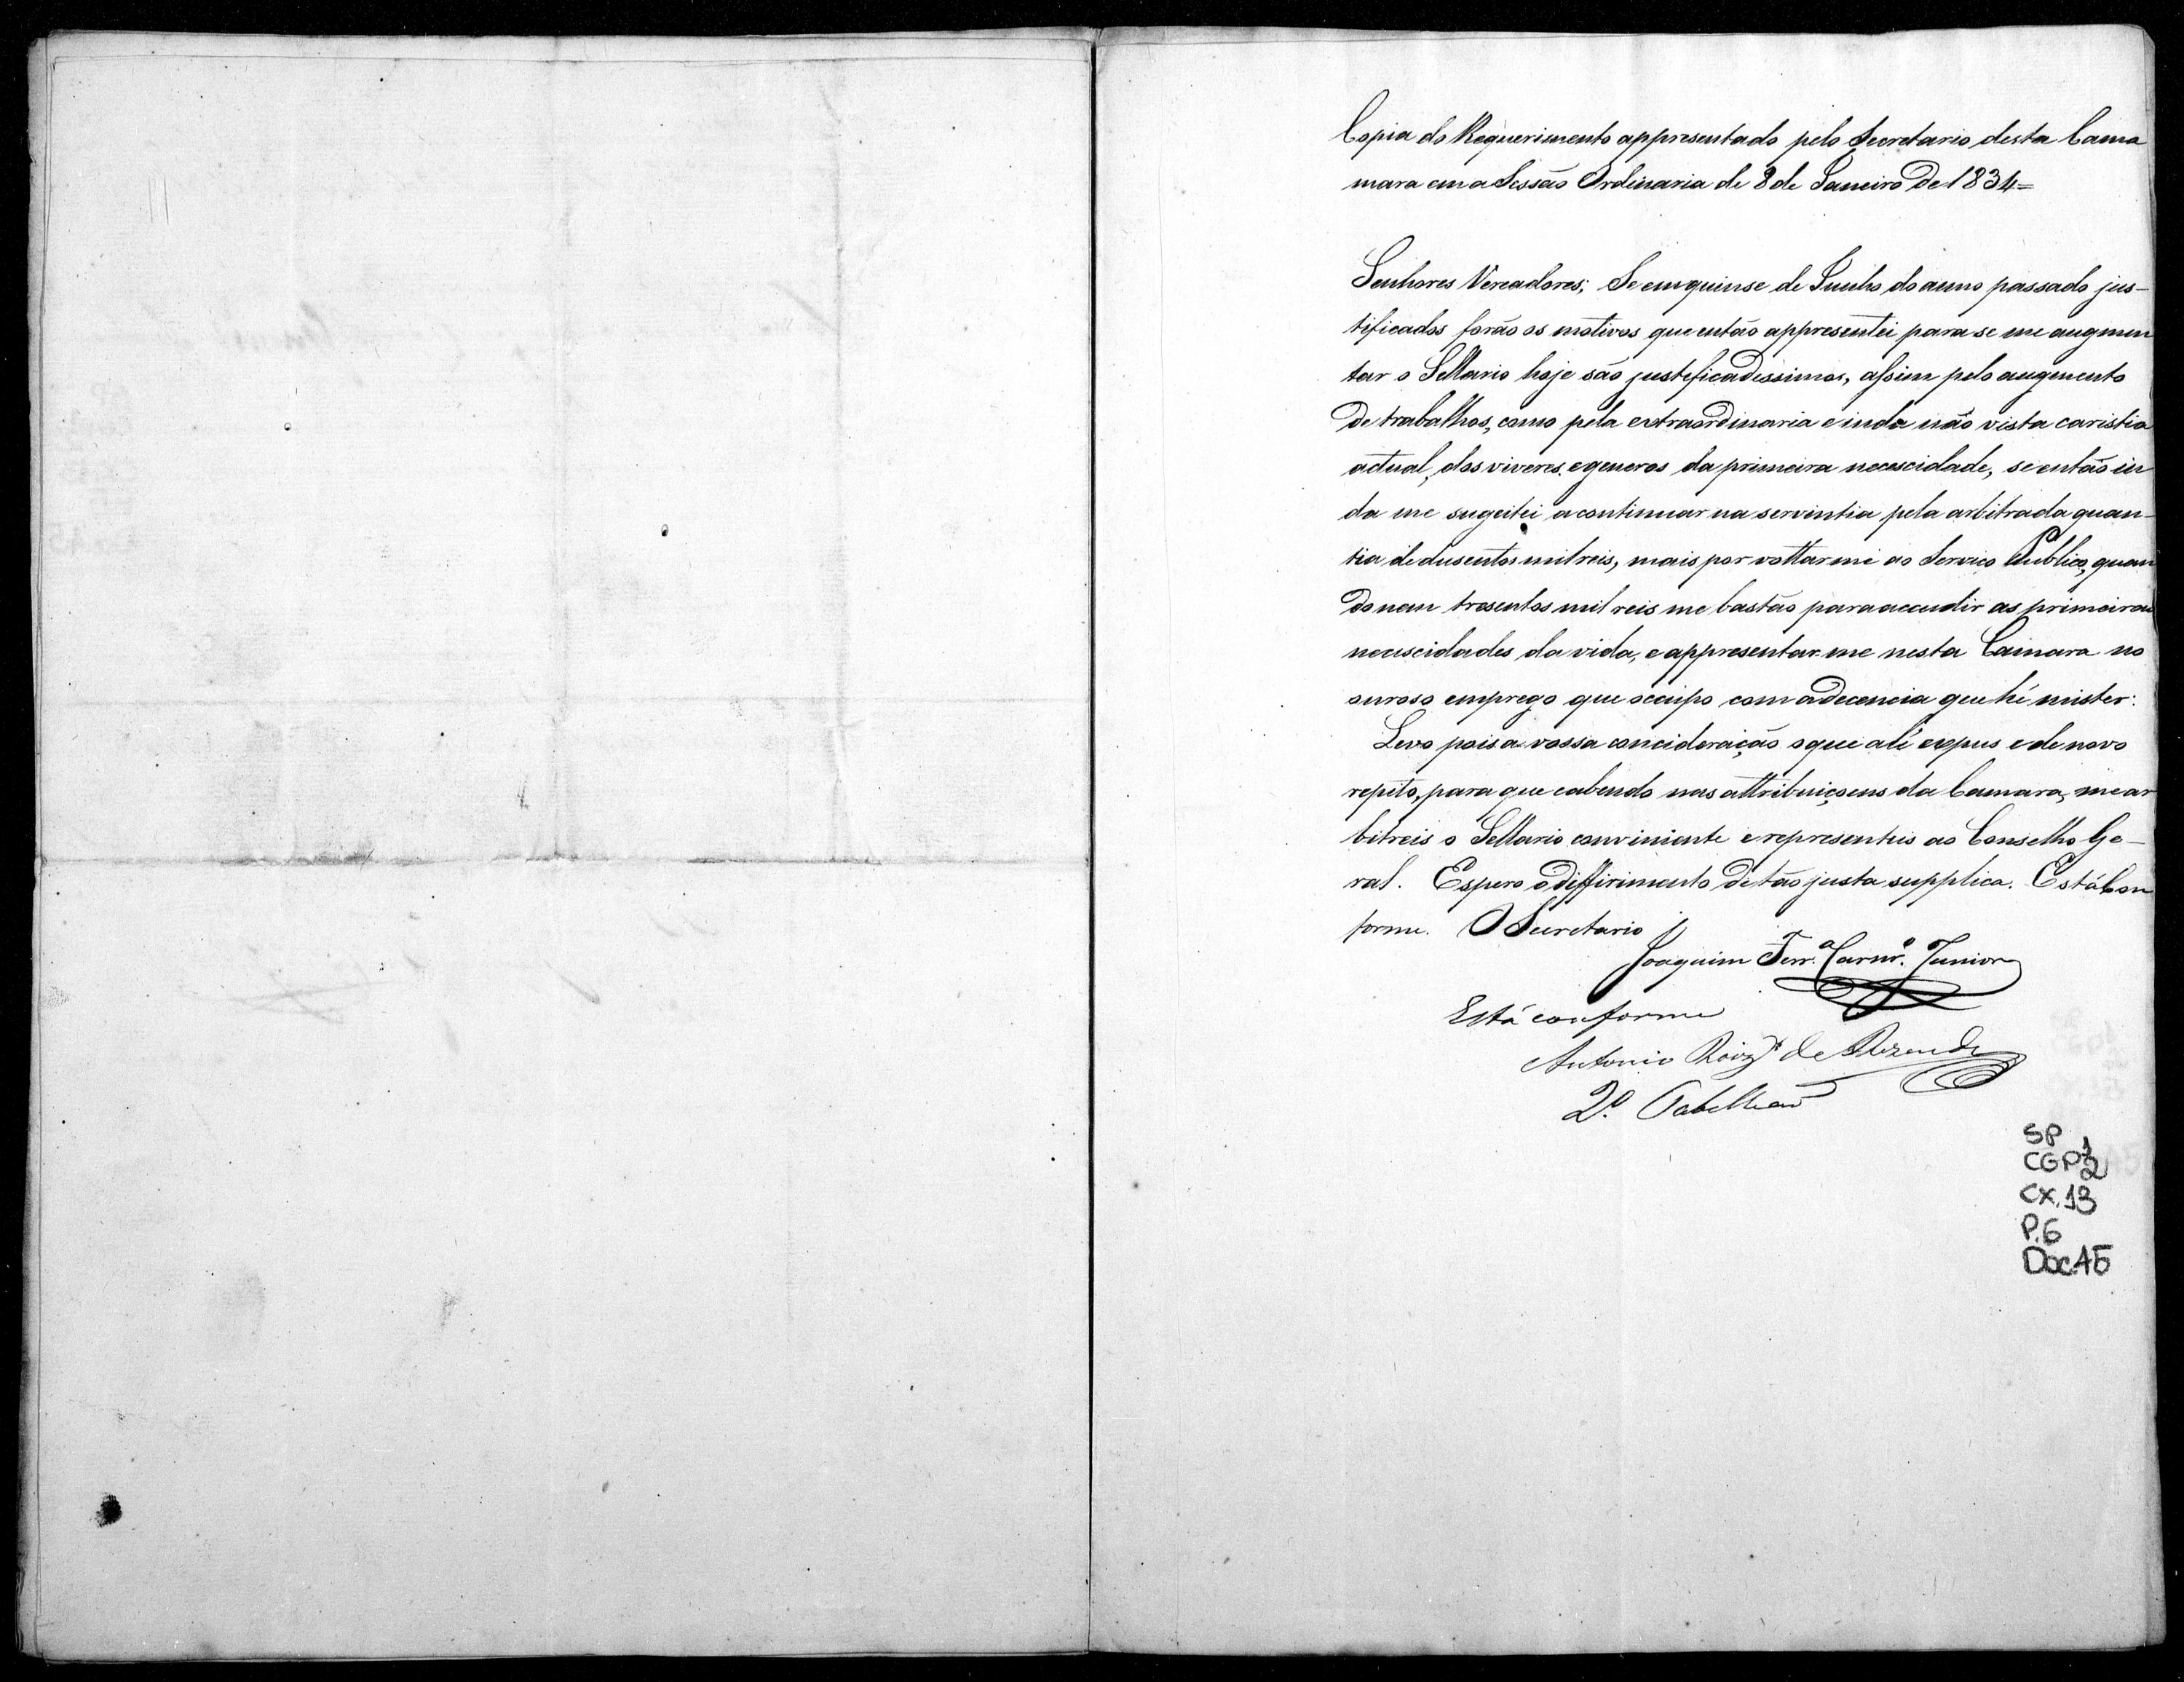 Copia do Requerimento appresentado pelo Secretario desta Cama
mara em a Sessão Ordinaria de 8 de Janeiro de 1834=
Senhores Vereadores; Se em quinse de Junho do anno passado jus-
tificados forão os motivos que então appresentei para se me augmen
tar o Sellario hoje são justeficadissimos, assim pelo augmento
de trabalhos, como pela extraordinaria e inda não vista caristia
actual, dos viveres, e generos da primeira necescidade, se então in
da me sugeitei a continuar na serventia pela arbitrada quan-
tia de dusentos mil reis, mais por vottarme ao Servico Publico, quan
do nem tresentos mil reis me bastão para accudir as primeiras
necescidades da vida, e appresentar-me nesta Camara no
onroso emprego que occupo com a decencia que hé mister:
Levo pois a vossa concideração o que alí expus e de novo
repito, para que cabendo nas attribuiçoens da Camara, me ar
bitreis o Sellario conviniente e representeis ao Conselho Ge-
ral. Espero o differimento de tão justa supplica. Está Con
forme. O Secretario
Joaquim Ferr.ª Carnr.º Junior
Está conforme
Antonio Roiz de Rezende
2º. Tabelleão
SP
CGP1
2
CX.13
P.6
Doc.15